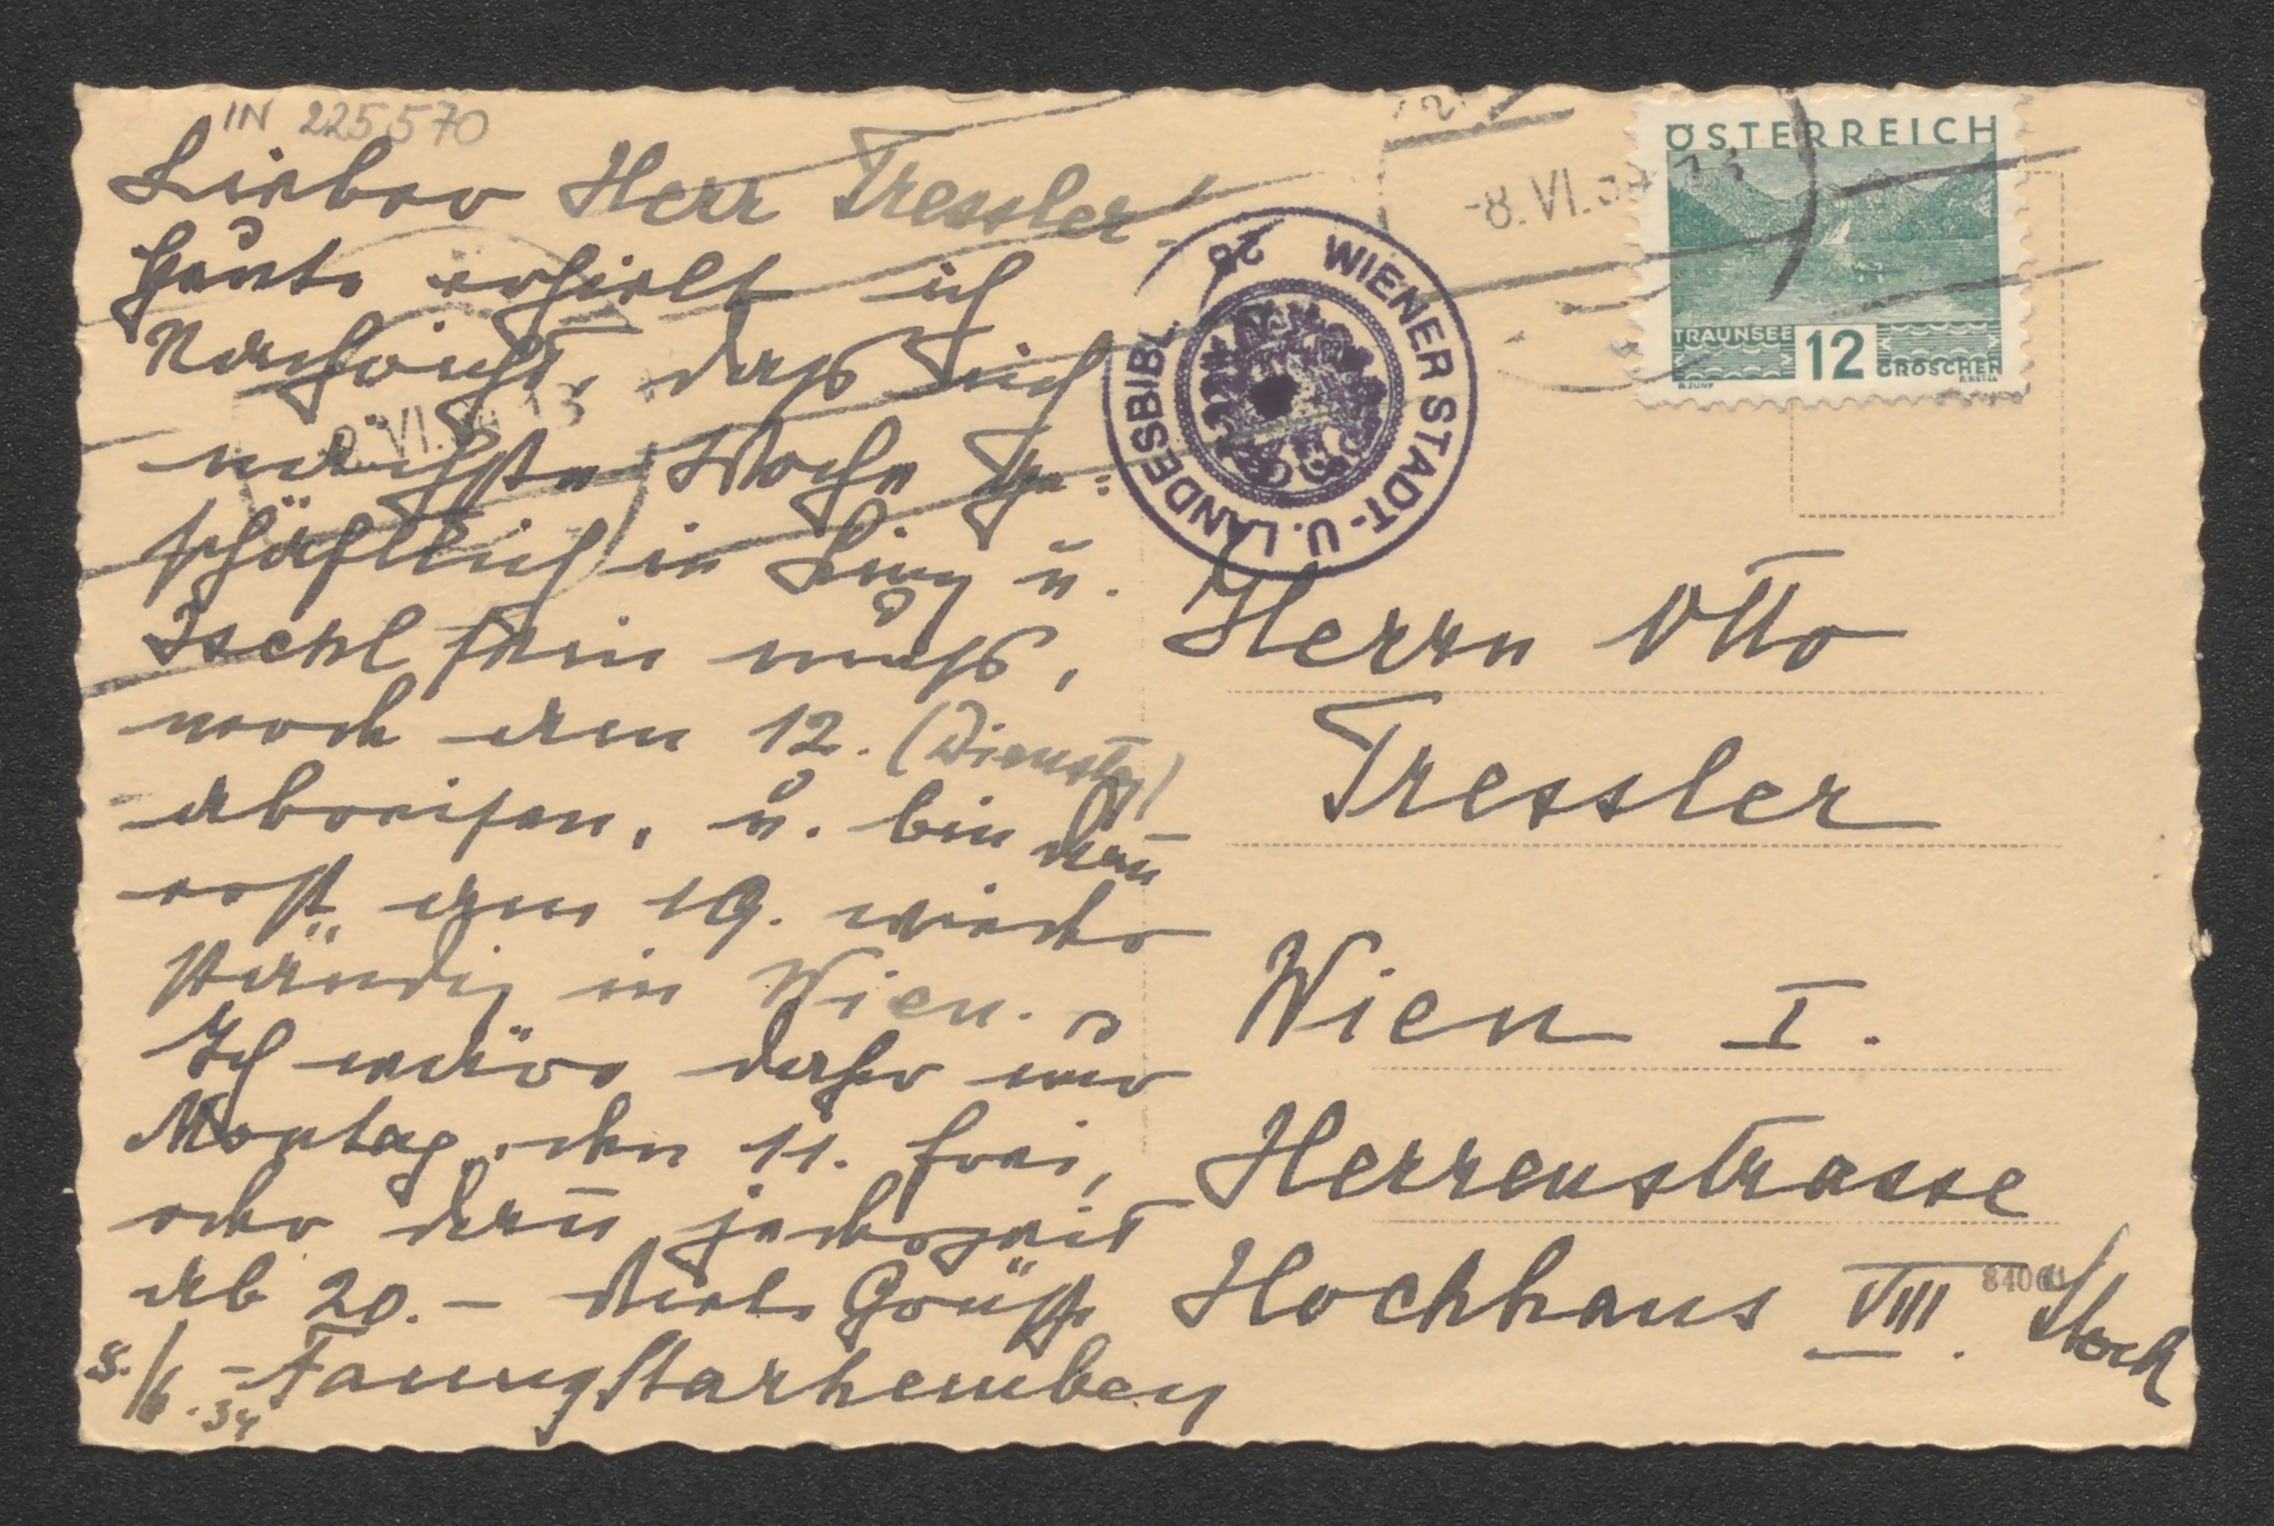 IN 225570
Lieber Herr Tressler!
Heute erhielt ich
Nachricht, dass ich
nächste Woche ge-
schäftlich in Linz u.
Ischl sein muß,
den 12. (Dienstag)
abreisen, u. bin dañ
erst am 19. wieder
ständig in Wien.
Ich wäre daher nur
Montag, den 11. frei,
oder dañ jederzeit
ab 20. – Viele Grüße
Fanny Starhemberg
8./6.34
-8.VI.34 13
-8.VI.34 13
WIENER STADT- U. LANDESBIBL.
ÖSTERREICH
TRAUNSEE
12 GROSCHEN
Herrn Otto
Tressler
Wien I.
Herrenstrasse
Hochhaus VIII. Stock